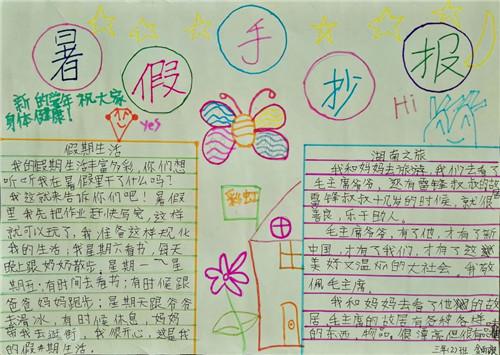 暑假手抄报
新的学年祝大家
身体健康!
yes
Hi
彩虹
假期生活
我的假期生活丰富多彩,你们想
听听我在暑假里干了什么吗?
我这就来告诉你们吧!暑假
里我先把作业赶快写完,这样
就可以玩了,我准备这样规化
我的生活:我星期六看书,每天
晚上跟奶奶散步。星期一~星
期五:有时间去看书;有时候跟
爸爸妈妈跑步;星期天跟爷爷
去滑冰,有时候休息,妈妈
带我去逛街,我很开心,这是我
的假期生活。
湖南之旅
我和妈妈去旅游,我们去看了
毛主席爷爷,还有雷锋叔叔的
雷锋叔叔十几岁的时候,就很
善良,乐于助人。
毛主席爷爷,有了他,才有了新
中国,才有了我们,才有了这
美好又温和的大社会。我敬
佩毛主席。
我和妈妈去看了他的故
居,毛主席的故居有各种各样
的东西,物品,很漂亮但很
三年(2)班